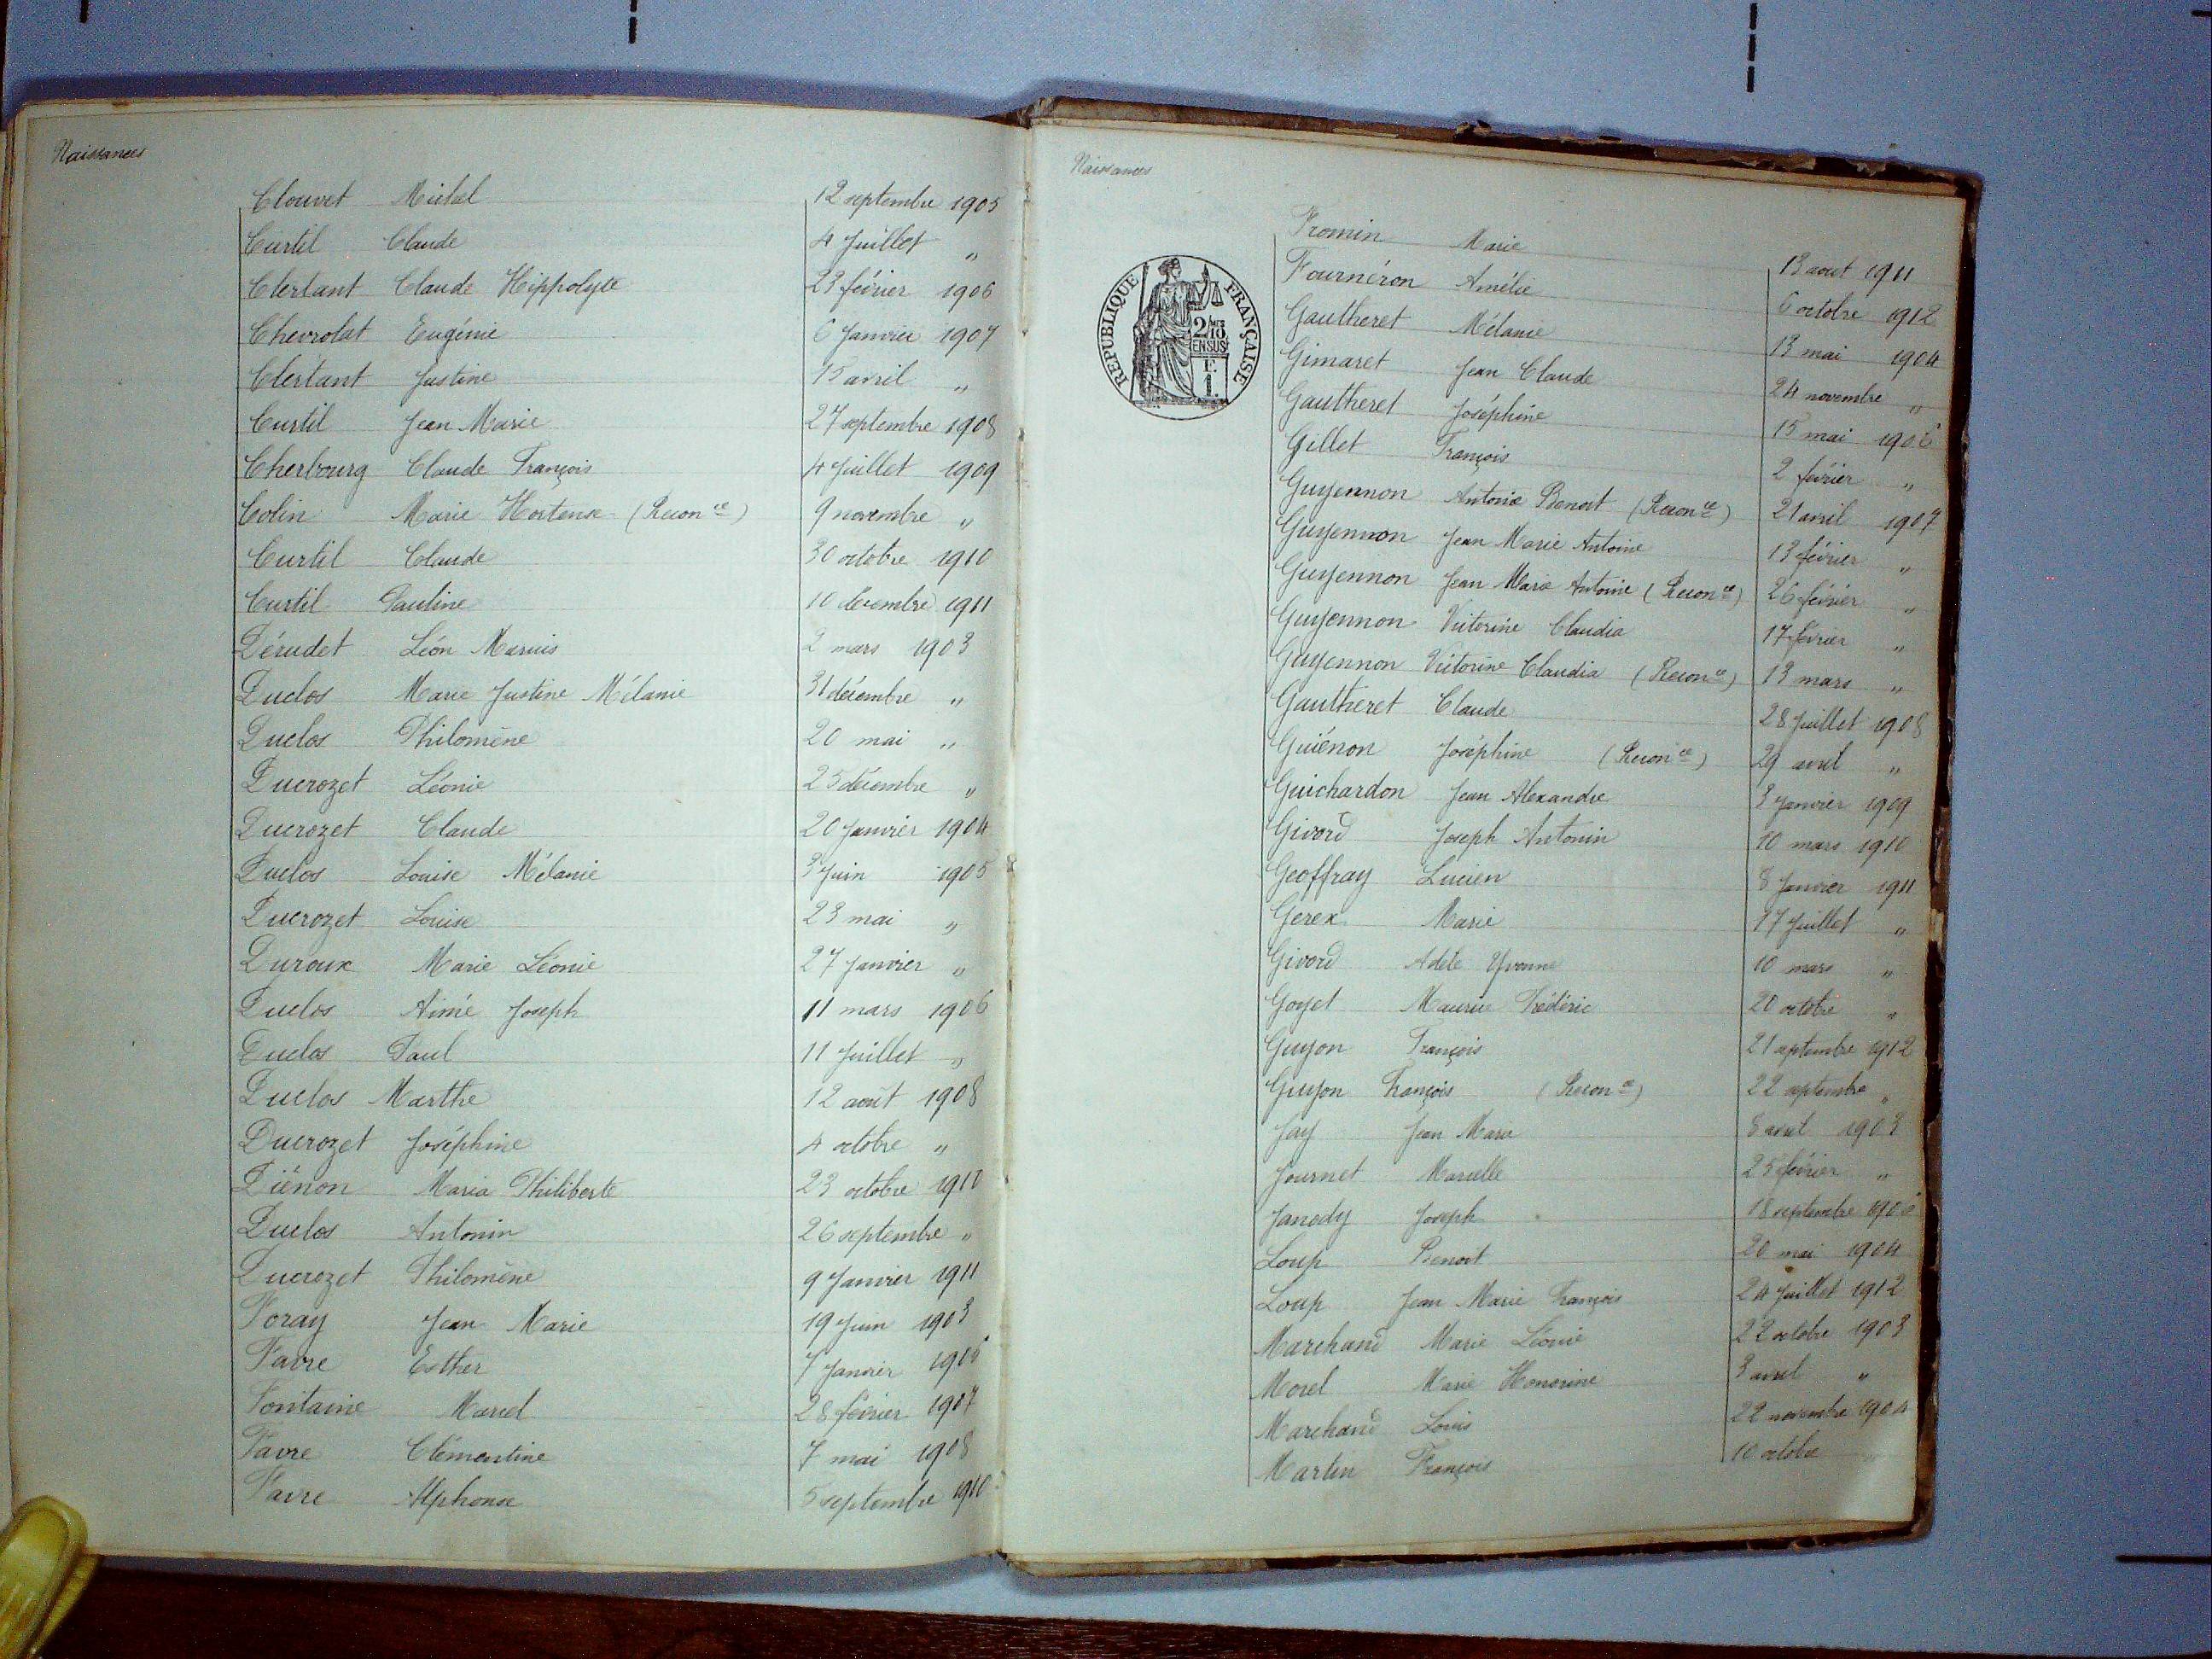 Naissances
Clouvet Michel 12 septembre 1905
Curtil Claude 4 Juillet "
Clertant Claude Hippolyte 23 février 1906
Chevrolat Eugénie 6 Janvier 1907
Clertant Justine 15 avril "
Curtil Jean Marie 27 septembre 1908
Cherbourg Claude François 4 Juillet 1909
Colin Marie Hortense (Recon ce) 9 novembre "
Curtil Claude 30 octobre 1910
Curtil Pauline 10 decembre 1911
Dérudet Léon Marius 2 mars 1903
Duclos Marie Justine Mélanie 31 décembre "
Duclos Philomène 20 mai "
Ducrozet Léonie 25 décembre "
Ducrozet Claude 20 Janvier 1904
Duclos Louise Mélanie 3 Juin 1905
Ducrozet Louise 23 mai "
Duroux Marie Léonie 27 Janvier "
Duclos Aimé Joseph 11 mars 1906
Duclos Paul 11 Juillet "
Duclos Marthe 12 août 1908
Ducrozet Joséphine 4 octobre "
Diénon Maria Philiberte 23 octobre 1910
Duclos Antonin 26 septembre "
Ducrozet Philomène 9 Janvier 1911
Foray Jean Marie 19 Juin 1903
Favre Esther 7 Janvier
Fontaine Marcel 28 février 1907
Favre Clémentine 7 mai 1908
Favre Alphonse 5 septembre 1910
Naissances
RÉPUBLIQUE FRANÇAISE
2/10 MES
EN SUS
F.
1.
Fromin Marie 13 aout 1911
Fournéron Amélie 6 octobre 1912
Gautheret Mélanie 13 mai 1904
Gimaret Jean Claude 24 novembre "
Gautheret Joséphine 15 mai
Gillet François 2 février "
Guyennon Antoine Benoit (Recon ce) 21 avril 1907
Guyennon Jean Marie Antoine 13 février "
Guyennon Jean Marie Antoine (Recon ce) 26 février "
Guyennon Victorine Claudia 17 février "
Guyennon Victorine Claudia (Recon ce) 13 mars "
Gautheret Claude 28 Juillet 1908
Guiénon Joséphine (Recon ce) 29 avril "
Guichardon Jean Alexandre 3 Janvier 1909
Givord Joseph Antonin 10 mars 1910
Geoffray Lucien 8 Janvier 1911
Gerex Marie 17 Juillet "
Givord Adèle Yvonne 10 mars "
Goyet Maurice Frédéric 20 octobre "
Guyon François 21 septembre 1912
Guyon François (Recon ce) 22 septembre "
Jay Jean Marie 8 avril 1903
Journet Marcelle 25 février "
Janody Joseph 18 septembre
Loup Benoit 20 mai 1904
Loup Jean Marie François 24 Juillet 1912
Marchand Marie Léonie 22 octobre 1903
Morel Marie Honorine 3 avril "
Marchand Louis 22 novembre 1904
Martin François 10 octobre